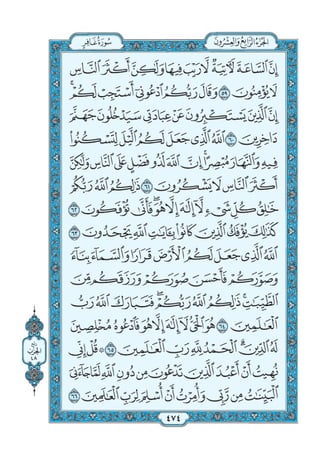 الجُزْءُ الرَّابِعُ وَالعِشْرُونَ
سُورَةُ غَافِرٍ
إِنَّ ٱلسَّاعَةَ لَأٓتِيَةٞ لَّا رَيۡبَ فِيهَا وَلَٰكِنَّ أَكۡثَرَ ٱلنَّاسِ
لَا يُؤۡمِنُونَ ٥٩ وَقَالَ رَبُّكُمُ ٱدۡعُونِيٓ أَسۡتَجِبۡ لَكُمۡۚ
إِنَّ ٱلَّذِينَ يَسۡتَكۡبِرُونَ عَنۡ عِبَادَتِي سَيَدۡخُلُونَ جَهَنَّمَ
دَاخِرِينَ ٦٠ ٱللَّهُ ٱلَّذِي جَعَلَ لَكُمُ ٱلَّيۡلَ لِتَسۡكُنُواْ
فِيهِ وَٱلنَّهَارَ مُبۡصِرًاۚ إِنَّ ٱللَّهَ لَذُو فَضۡلٍ عَلَى ٱلنَّاسِ وَلَٰكِنَّ
أَكۡثَرَ ٱلنَّاسِ لَا يَشۡكُرُونَ ٦١ ذَٰلِكُمُ ٱللَّهُ رَبُّكُمۡ
خَٰلِقُ كُلِّ شَيۡءٖ لَّآ إِلَٰهَ إِلَّا هُوَۖ فَأَنَّىٰ تُؤۡفَكُونَ ٦٢
كَذَٰلِكَ يُؤۡفَكُ ٱلَّذِينَ كَانُواْ بِـَٔايَٰتِ ٱللَّهِ يَجۡحَدُونَ ٦٣
ٱللَّهُ ٱلَّذِي جَعَلَ لَكُمُ ٱلۡأَرۡضَ قَرَارٗا وَٱلسَّمَآءَ بِنَآءٗ
وَصَوَّرَكُمۡ فَأَحۡسَنَ صُوَرَكُمۡ وَرَزَقَكُم مِّنَ
ٱلطَّيِّبَٰتِۚ ذَٰلِكُمُ ٱللَّهُ رَبُّكُمۡۖ فَتَبَارَكَ ٱللَّهُ رَبُّ
ٱلۡعَٰلَمِينَ ٦٤ هُوَ ٱلۡحَيُّ لَآ إِلَٰهَ إِلَّا هُوَ فَٱدۡعُوهُ مُخۡلِصِينَ
لَهُ ٱلدِّينَۗ ٱلۡحَمۡدُ لِلَّهِ رَبِّ ٱلۡعَٰلَمِينَ ٦٥ ۞ قُلۡ إِنِّي
نُهِيتُ أَنۡ أَعۡبُدَ ٱلَّذِينَ تَدۡعُونَ مِن دُونِ ٱللَّهِ لَمَّا جَآءَنِيَ
ٱلۡبَيِّنَٰتُ مِن رَّبِّي وَأُمِرۡتُ أَنۡ أُسۡلِمَ لِرَبِّ ٱلۡعَٰلَمِينَ ٦٦
الحِزْب
٤٨
٤٧٤